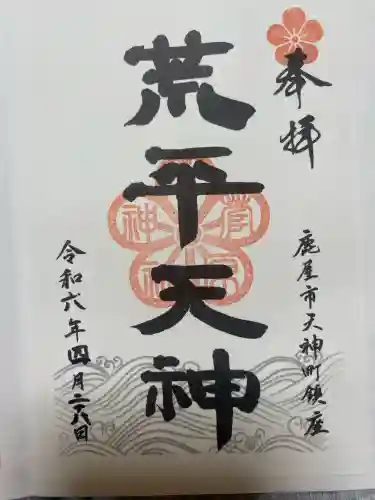 奉拝
鹿屋市天神町鎮座
荒平天神
令和六年四月二十八日